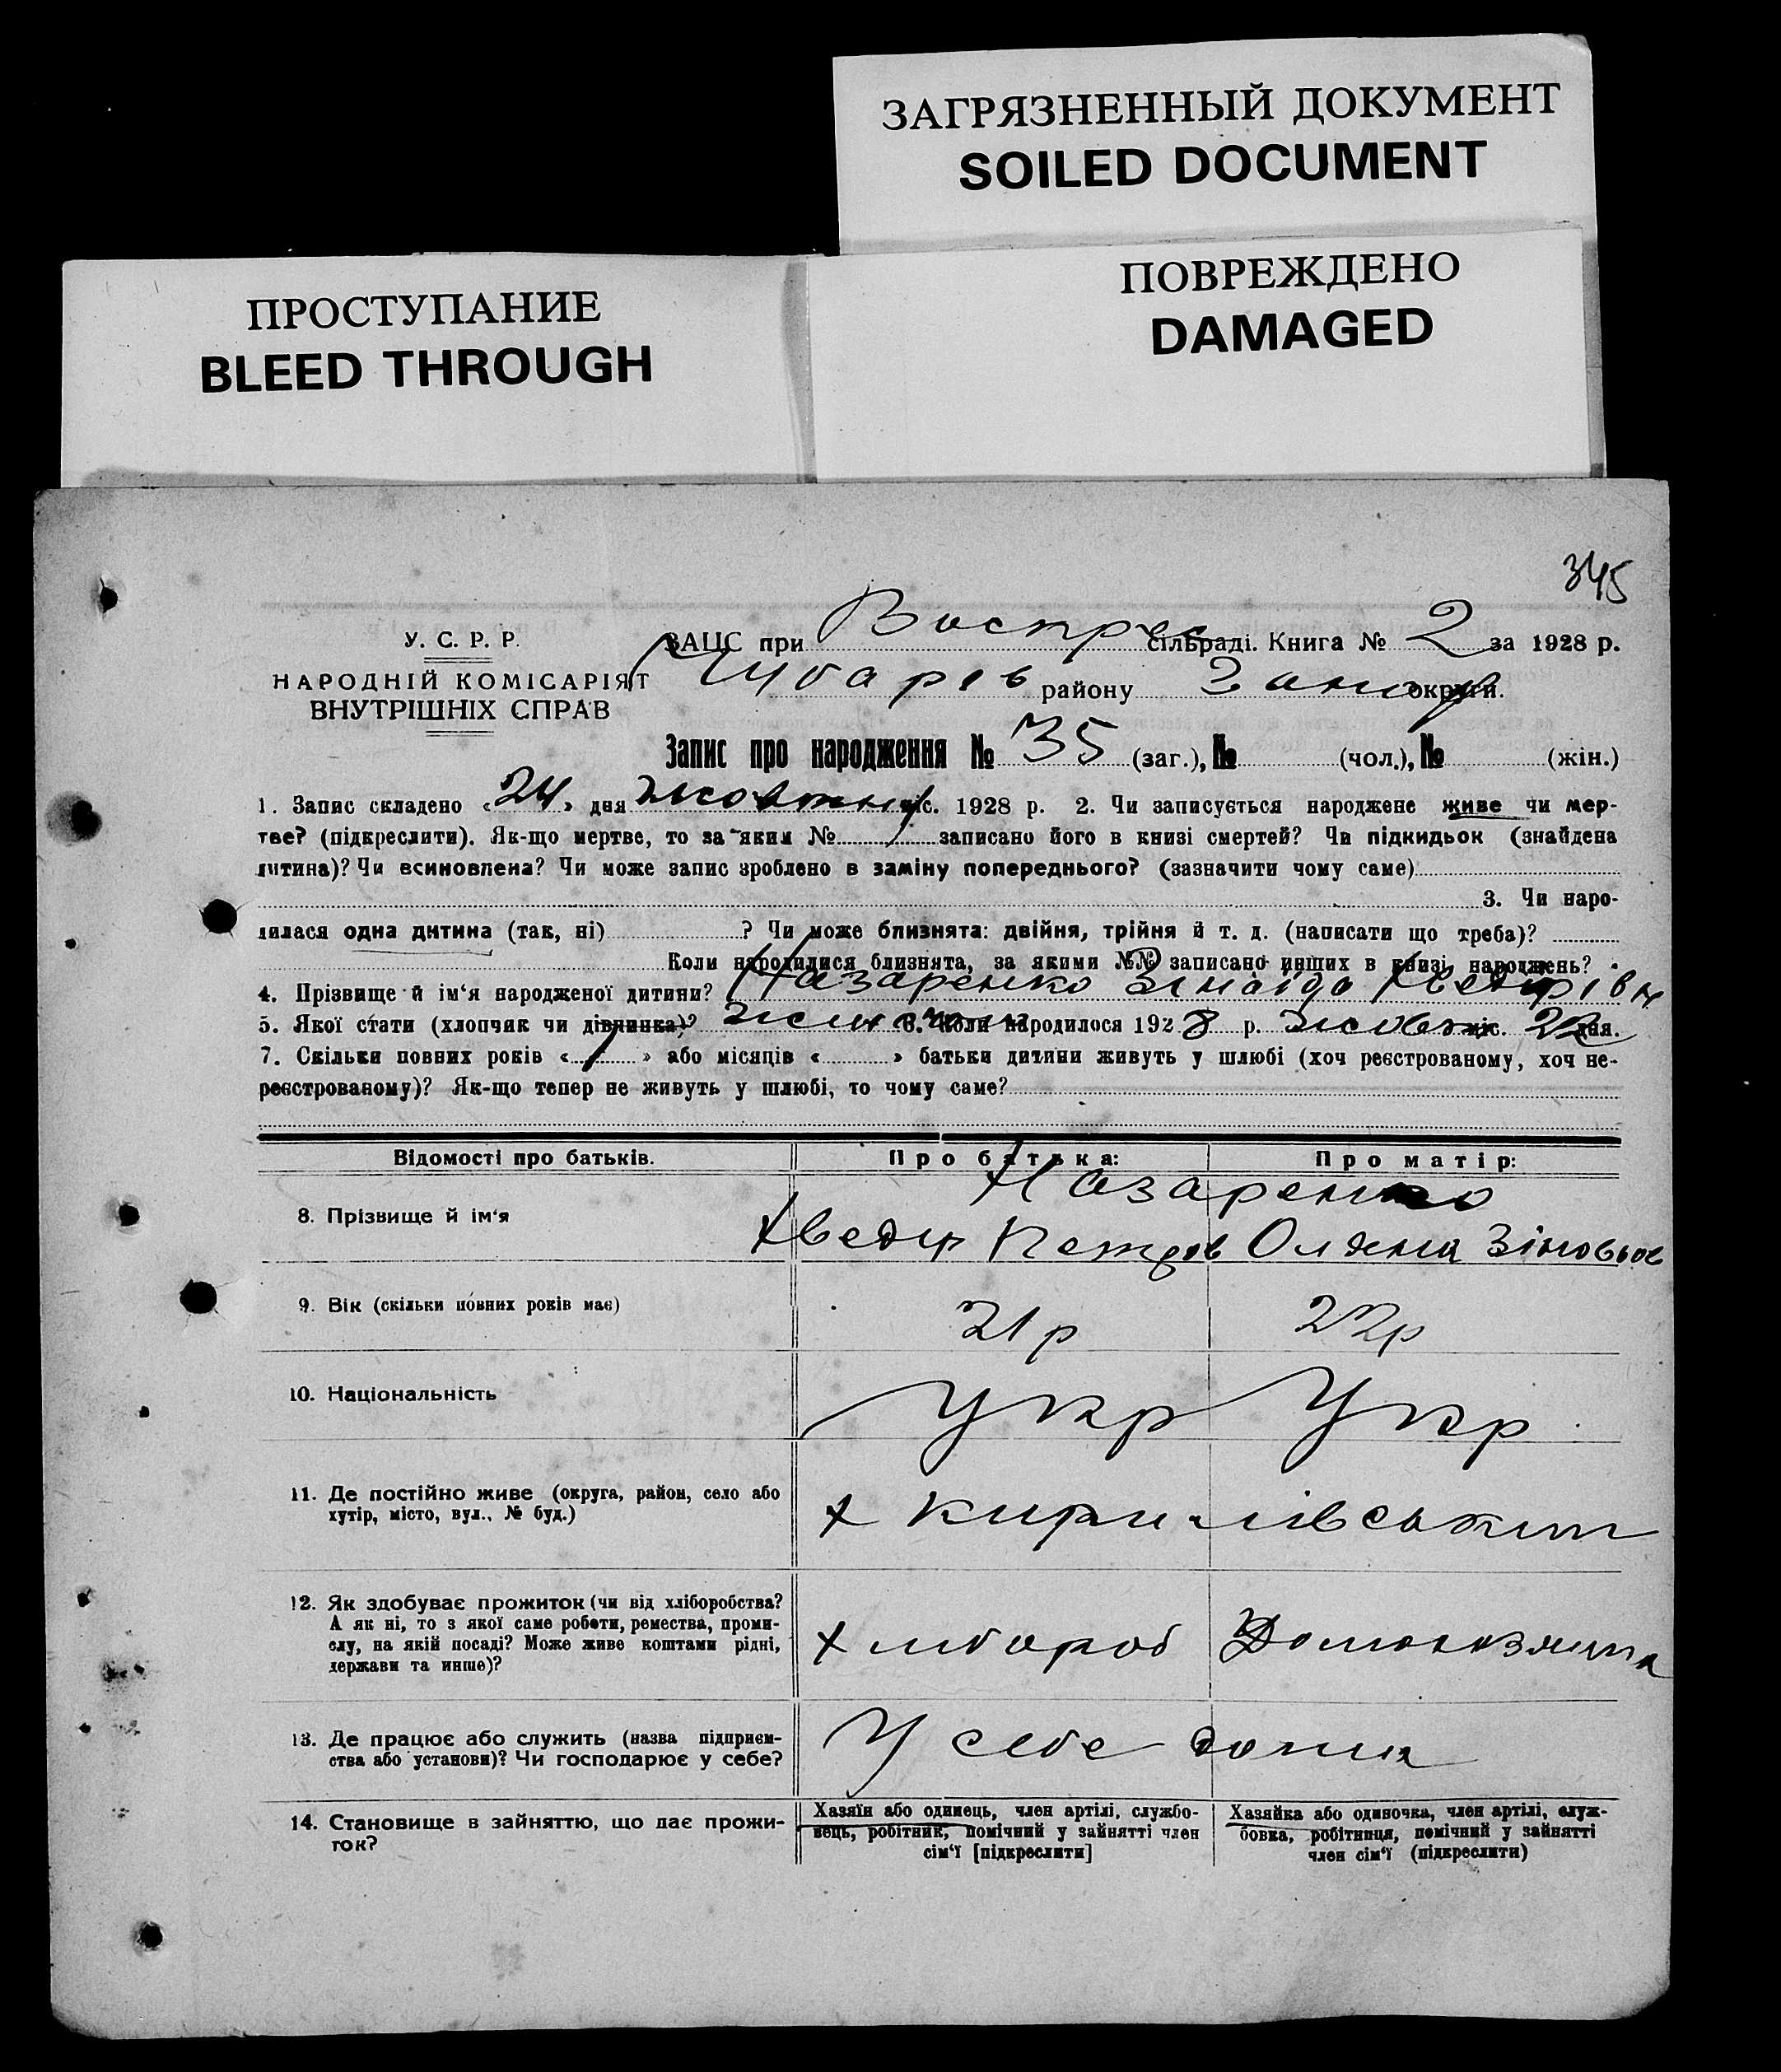 ЗАГРЯЗНЕННЫЙ ДОКУМЕНТ
SOILED DOCUMENT
ПРОСТУПАНИЕ
BLEED THROUGH
ПОВРЕЖДЕНО
DAMAGED
345
У. С. Р. Р.
НАРОДНІЙ КОМІСАРІЯТ
ВНУТРІШНІХ СПРАВ
ЗАЦС при Воскрес сільраді. Книга № 2 за 1928 р.
Чубарів району Запор округи.
Запис про народження № 35 (заг.), № (чол.), № (жін.)
1. Запис складено «24» дня жовтня міс. 1928 р. 2. Чи записується народжене живе чи мер-
тве? (підкреслити). Як-що мертве, то за яким № записано його в книзі смертей? Чи підкидьок (знайдена
дитина)? Чи всиновлена? Чи може запис зроблено в заміну попереднього? (зазначити чому саме)
3. Чи наро-
дилася одна дитина (так, ні) ? Чи може близнята: двійня, трійня й т. д. (написати що треба)?
Коли народилися близнята, за якими №№ записано инших в книзі народжень?
4. Прізвище й ім‘я народженої дитини? Назаренко Зінаїда Хведорівн
5. Якої стати (хлопчик чи дівчинка)? 6. Коли народилося 1928 р. жовтн міс. 22 дня.
7. Скільки повних років « 1 » або місяців « » батьки дитини живуть у шлюбі (хоч реєстрованому, хоч не-
реєстрованому)? Як-що тепер не живуть у шлюбі, то чому саме?
Відомості про батьків. Про батька: Про матір:
Назаренко
8. Прізвище й ім‘я Хведір Петров Олена Зіновьов
9. Вік (скільки повних років має) 21 р 22 р
10. Національність Укр Укр
11. Де постійно живе (округа, район, село або
хутір, місто, вул., № буд.) х Кирилівський
12. Як здобуває прожиток (чи від хліборобства?
А як ні, то з якої саме роботи, ремества, проми-
слу, на якій посаді? Може живе коштами рідні,
держави та инше)? хлібороб Домохазяйка
13. Де працює або служить (назва підприєм-
ства або установи)? Чи господарює у себе? У себе дома
14. Становище в зайняттю, що дає прожи-
ток?
Хазяїн або одинець, член артілі, службо-
вець, робітник, помічний у зайнятті член
сім‘ї [підкреслити]
Хазяйка або одиночка, член артілі, служ-
бовка, робітниця, помічний у зайнятті
член сім‘ї (підкреслити)